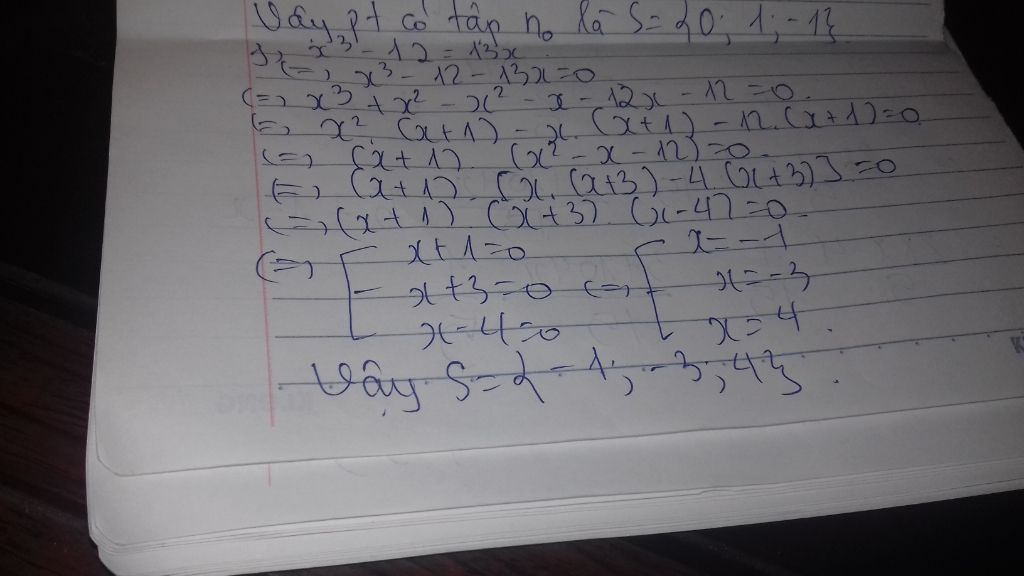 Vậy pt có tập no là S={0; 1; -1}
x³ - 12 = 13x
(=) x³ - 12 - 13x = 0
(=) x³ + x² - x² - x - 12x - 12 = 0.
(=) x². (x+1) - x. (x+1) - 12. (x+1) = 0
(=) (x+1) (x² - x - 12) = 0
(=) (x+1). [x. (x+3) - 4. (x+3)] = 0
(=) (x+1) (x+3) (x-4) = 0.
(=) [ x+1=0 (=) [ x=-1
x+3=0 x=-3
x-4=0 x=4.
Vậy S={-1; -3; 4}.